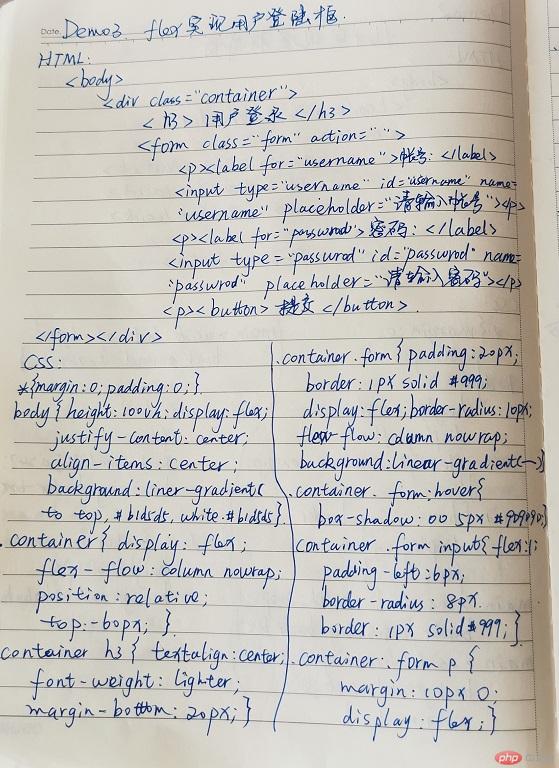 Date.
Demo3 flex实现用户登陆框.
HTML:
<body>
<div class="container">
<h3> 用户登录 </h3>
<form class="form" action=" ">
<p><label for="username">帐号: </label>
<input type="username" id="username" name=
"username" placeholder="请输入帐号"></p>
<p><label for="passwrod"> 密码: </label>
<input type="passwrod" id="passwrod" name=
"passwrod" placeholder="请输入密码"></p>
<p><button> 提交 </button>
</form></div>
CSS:
*{margin:0; padding:0;}
body { height:100vh; display:flex;
justify-content: center;
align-items: center;
background: liner-gradient(
to top, #b1d5d5, white, #b1d5d5}
.container { display: flex;
flex-flow: column nowrap;
position: relative;
top: -60px; }
container h3 { textalign: center;
font-weight: lighter;
margin-bottom: 20px; }
.container .form { padding: 20px;
border: 1px solid #999;
display: flex; border-radius: 10px;
flow-flow: column nowrap;
background: linear-gradient(—)}
.container .form:hover{
box-shadow: 0 0 5px #909090;}
container .form input{ flex:1;
padding-left: 6px;
border-radius: 8px.
border: 1px solid #999; }
.container .form p {
margin: 10px 0;
display: flex; }
php